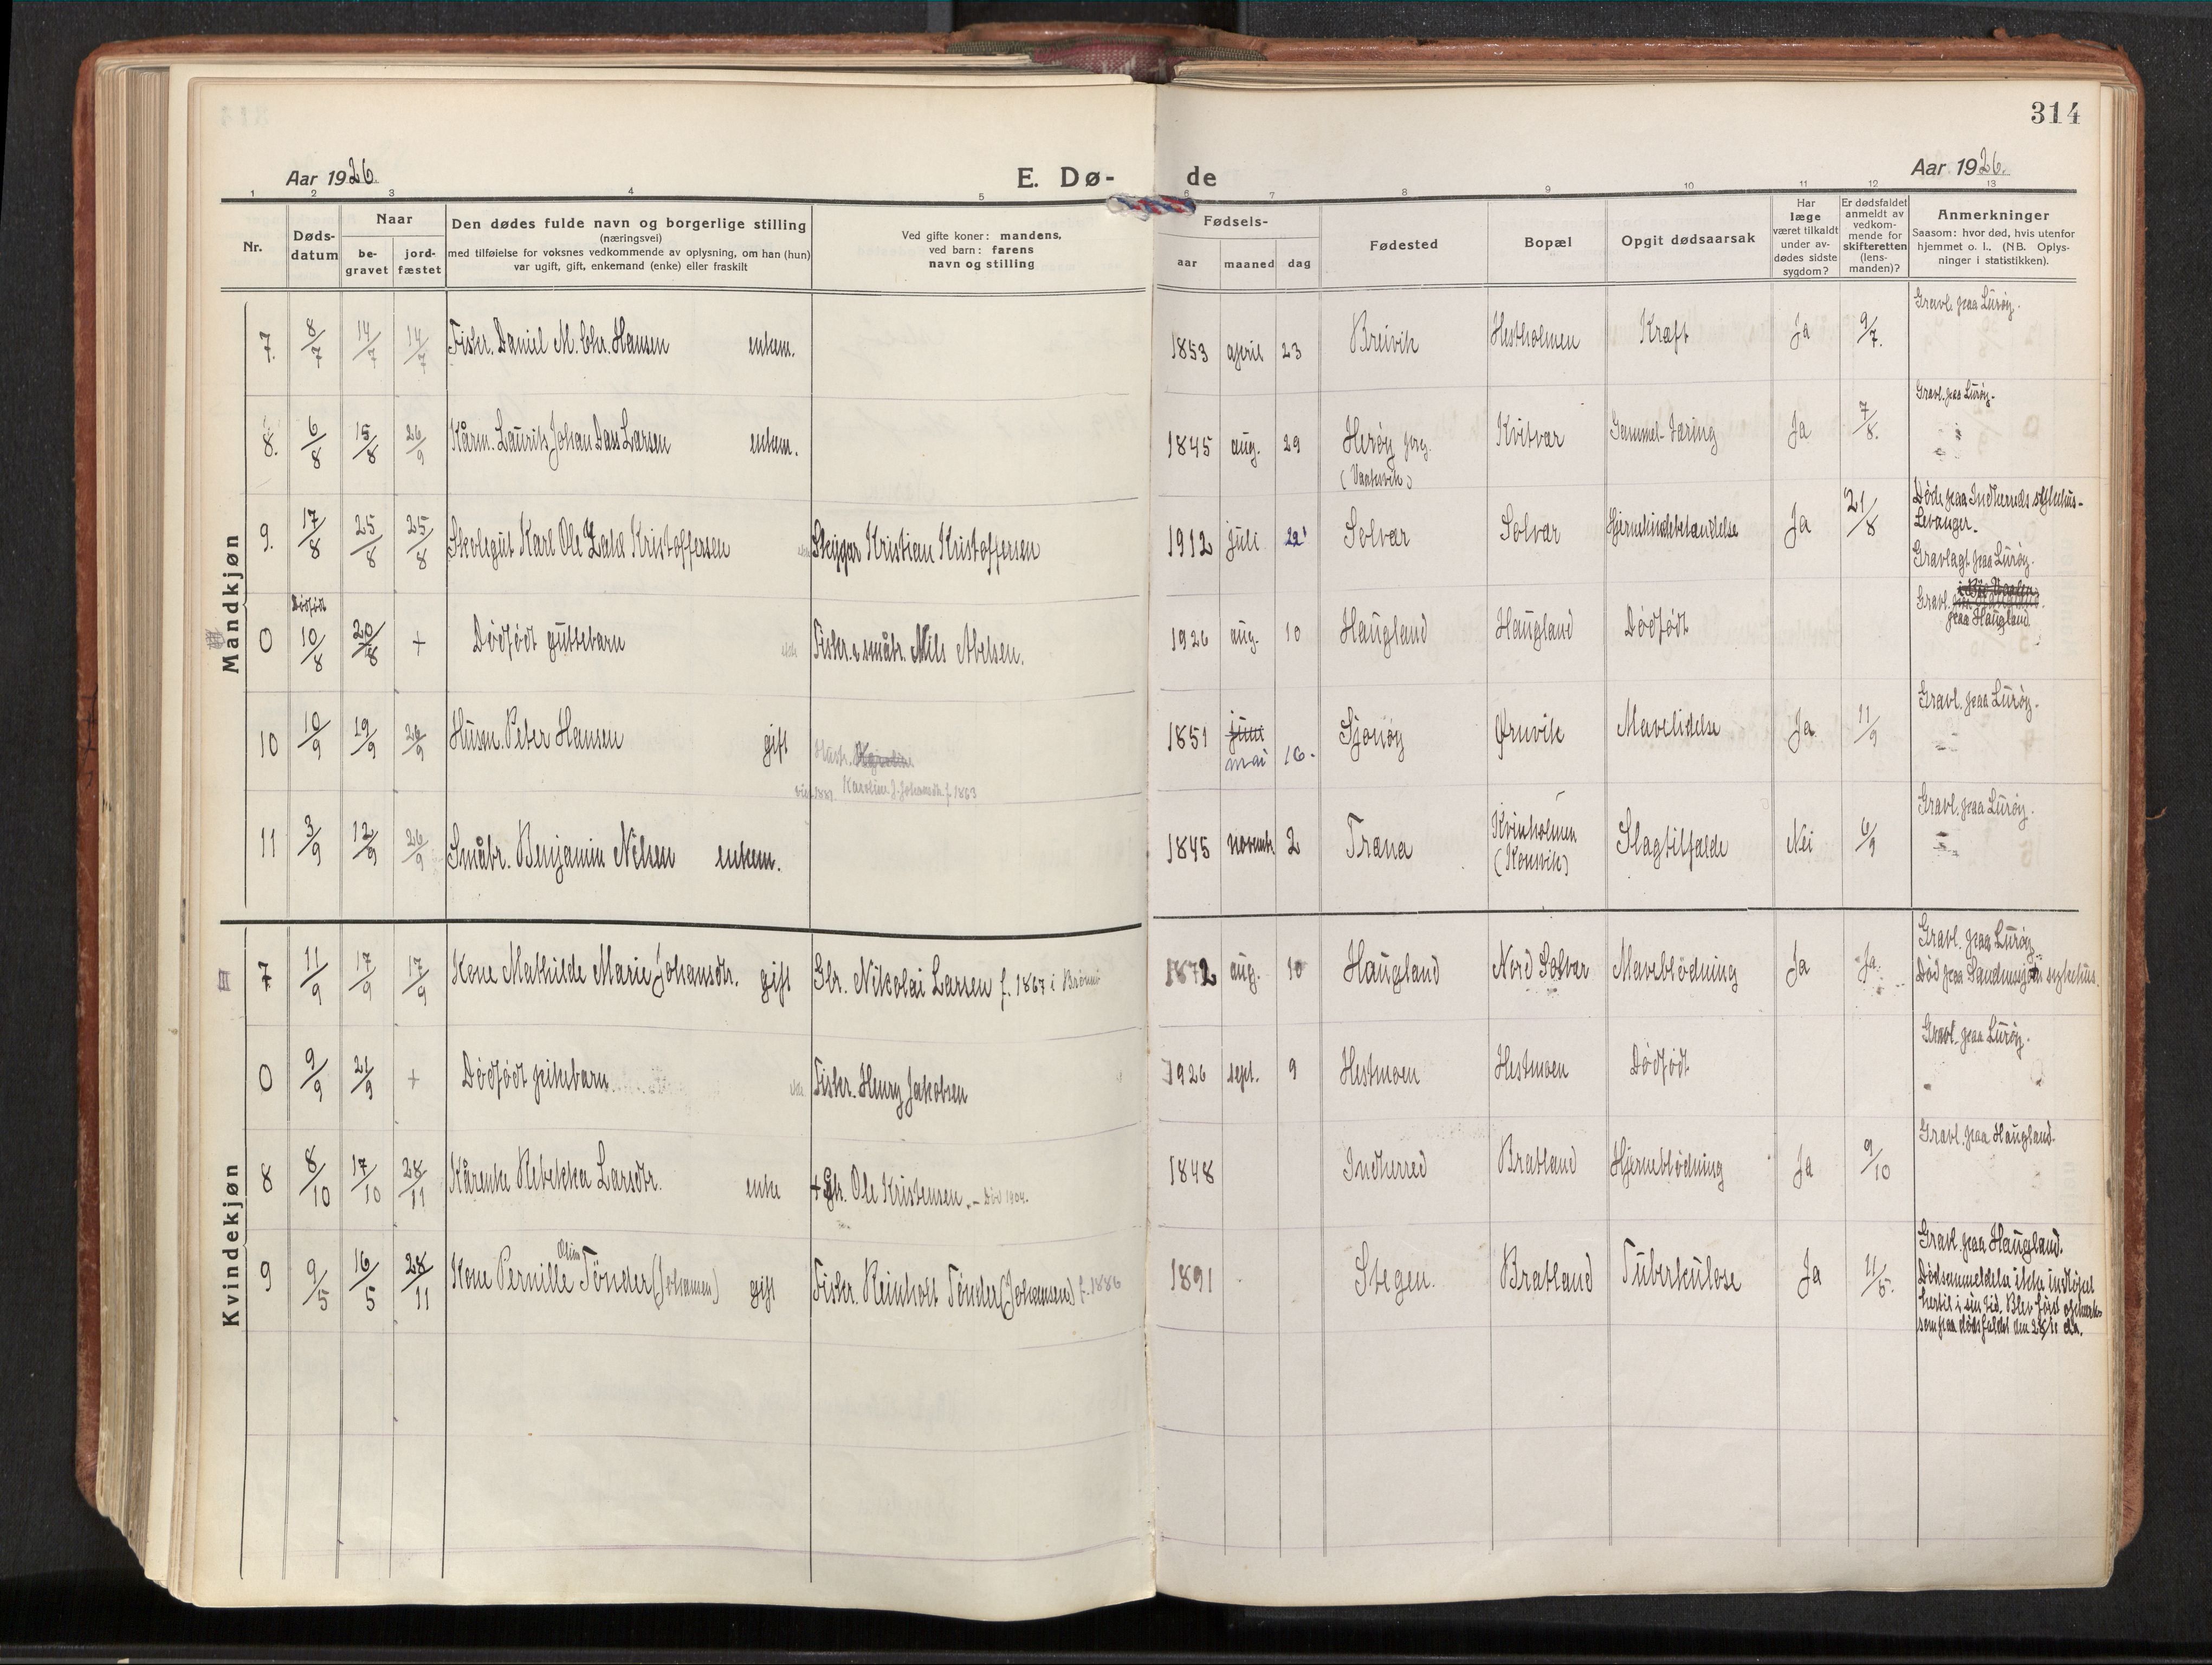 314
Aar 1926.
E. Dø-
de
Aar 1926.
1 2 3 4 5 6 7 8 9 10 11 12 13
Nr.
Døds-
datum
Naar
be-
gravet
jord-
fæstet
Den dødes fulde navn og borgerlige stilling
(næringsvei)
med tilføielse for voksnes vedkommende av oplysning, om han (hun)
var ugift, gift, enkemand (enke) eller fraskilt
Ved gifte koner: mandens,
ved barn: farens
navn og stilling
Fødsels-
aar maaned dag
Fødested
Bopæl
Opgit dødsaarsak
Har
læge
været tilkaldt
under av-
dødes sidste
sygdom?
Er dødsfaldet
anmeldt av
vedkom-
mende for
skifteretten
(lens-
manden)?
Anmerkninger
Saasom: hvor død, hvis utenfor
hjemmet o. l., (NB. Oplys-
ninger i statistikken).
Mandkjøn
7. 8/7 14/7 14/7 Fiskr. Daniel M. Chr. Hansen enkem. 1853 april 23 Breivik Hestholmen Kræft Ja 9/7. Gravl. paa Lurøy.
8. 6/8 15/8 26/9 Kårm. Laurits Johan Dass Larsen enkem. 1845 aug. 29 Herøy prg. Kvitvær Gammel-tæring Ja 7/8. Gravl. paa Lurøy.
9. 17/8 25/8 25/8 Skolegut Karl Ole Kristoffersen Kristian Kristoffersen 1912 juli 22 Solvær Solvær Ja 21/8 Døde paa Indherreds sykehus-
Levanger.
Gravlagt paa Lurøy.
Dødfødt
0 10/8 20/8 + Dødfødt guttebarn Fiskr. & småbr. Nils Abelsen. 1926 aug. 10 Haugland Haugland Dødfødt Gravl.
paa Haugland
10 10/9 19/9 26/9 Husm. Peter Hansen gift 1851 juni Sjonøy Ørnvik Mavelidelse Ja 11/9 Gravl. paa Lurøy.
mai 16.
Karoline J. Johansdtr. f. 1863
11 3/9 12/9 26/9 Småbr. Benjamin Nilsen enkem. 1845 novemb. 2 Træna Kvinholmen Slagtilfælde Nei 6/9 Gravl. paa Lurøy.
(Konsvik)
Kvindekjøn
7 11/9 17/9 17/9 Kone Mathilde Marie Johansdtr. gift Gbr. Nikolai Larsen f. 1867 i 1872 aug. 10 Haugland Nord Solvær Maveblødning Ja Ja. Gravl. paa Lurøy.
Død paa Sandnessjøen sykehus.
0 9/9 21/9 + Dødfødt pikebarn Fiskr. Henry Jakobsen 1926 sept. 9 Hestmoen Hestmoen Dødfødt Gravl. paa Lurøy.
8 8/10 17/10 28/11 Kårenke Rebekka Larsdtr. enke Ole Kristensen. - Død 1904. 1848 Indherred Bratland Hjerneblødning Ja 9/10 Gravl. paa Haugland.
9 9/5 16/5 28/11 Kone Pernille Oline Tønder (Johansen) gift Fiskr. Reinholt Tønder (Johansen) f. 1886 1891 Stegen. Bratland Tuberkulose Ja 11/5. Gravl. paa Haugland.
Dødsanmeldelse ikke indløpet
hertil i sin tid. Blev først opmerk-
som paa dødsfaldet den